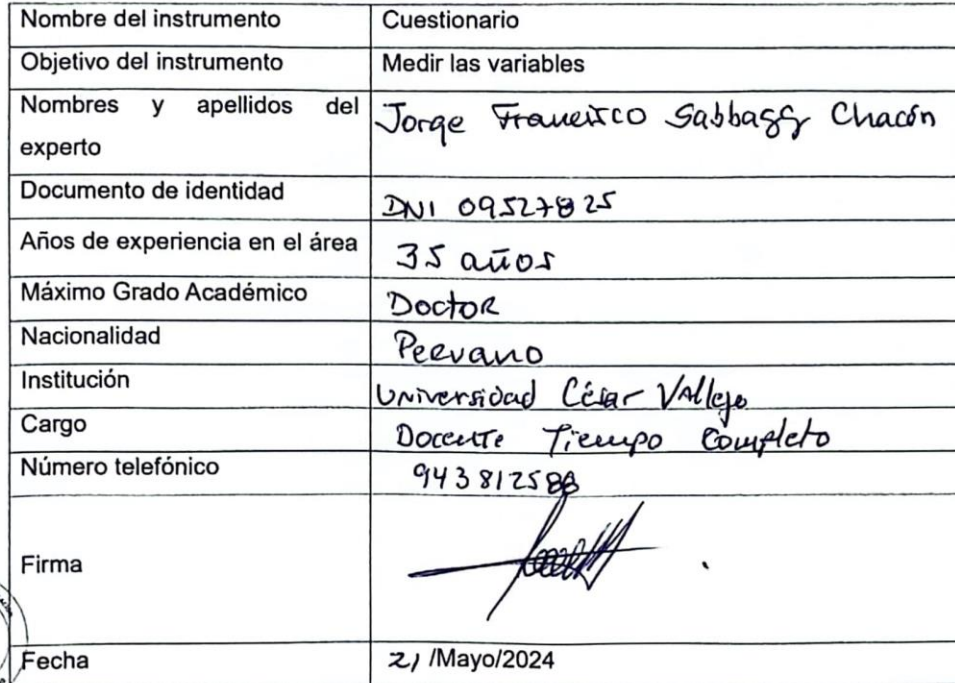 Nombre del instrumento Cuestionario
Objetivo del instrumento Medir las variables
Nombres y apellidos del
experto Jorge Francisco Sabbagg Chacón
Documento de identidad DNI 09527825
Años de experiencia en el área 35 años
Máximo Grado Académico Doctor
Nacionalidad Peruano
Institución Universidad César Vallejo
Cargo Docente Tiempo Completo
Número telefónico 943812588
Firma
Fecha 21 /Mayo/2024